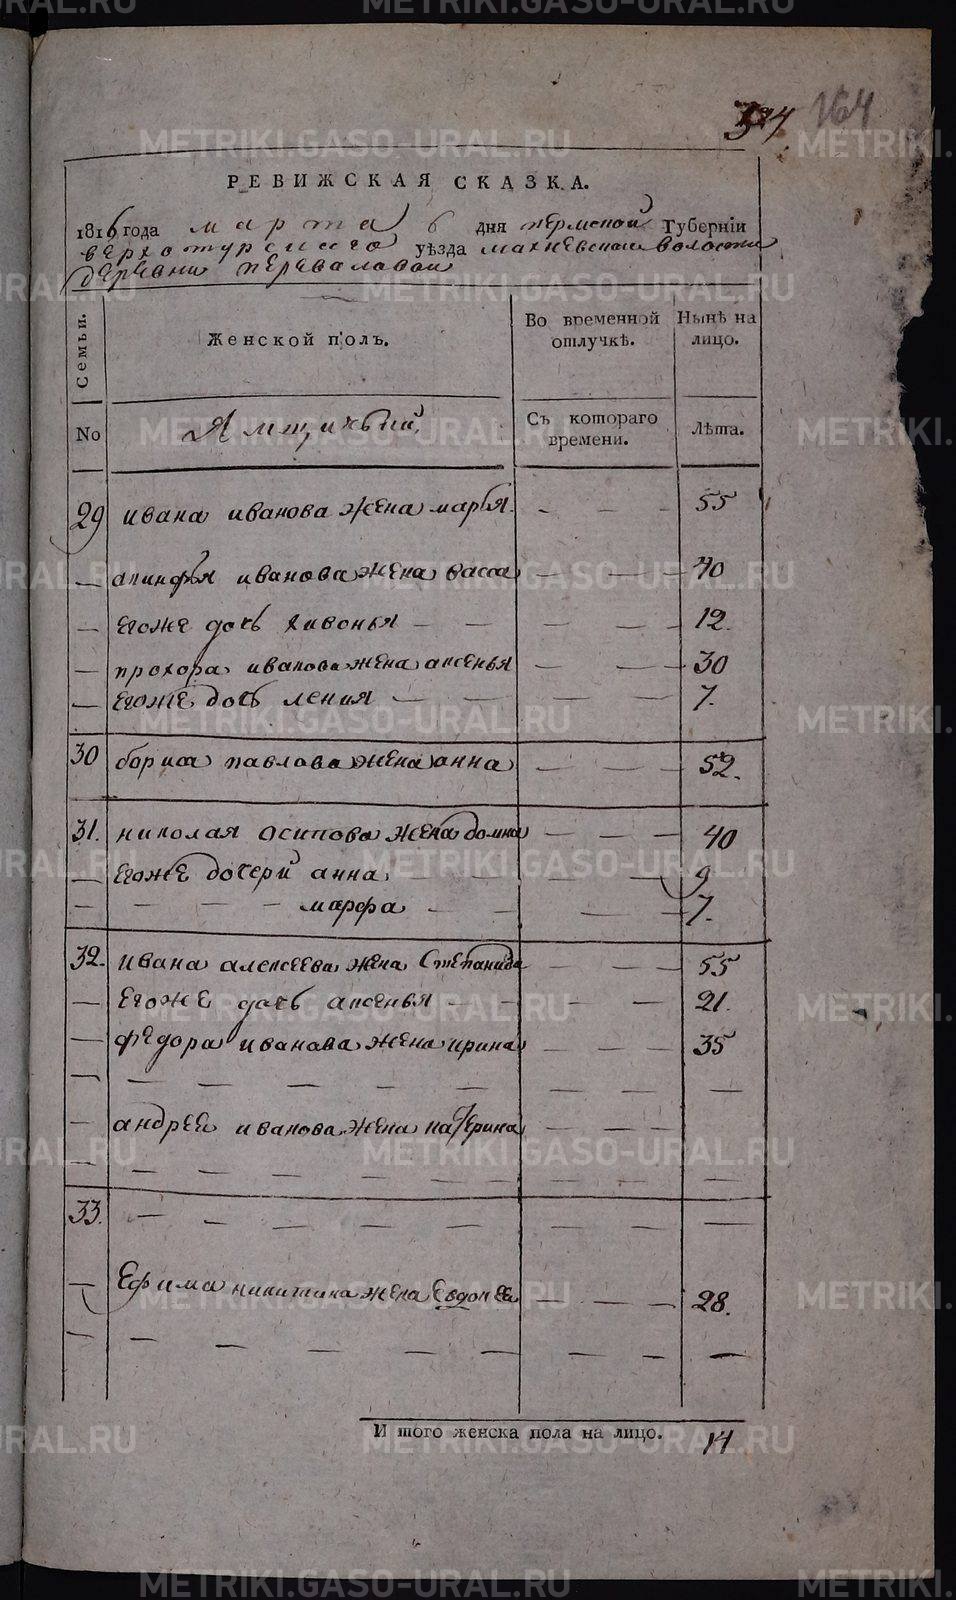 164
РЕВИЖСКАЯ СКАЗКА.
1816 года марта 6 дня пермской Губернїи
верхотурского уѣзда махневской волости
деревни перваловой
Семьи. Женской полъ. Во временной отлучкѣ. Нынѣ на лицо.
No Съ котораго времени. Лѣта.
29 ивана иванова жена марья 55
— иванова жена васса — — — 40
— егоже дочь хивонья — — — — 12.
— прохора иванова жена аксенья — — — 30
— егоже дочь — — — — 7.
30 бориса павлова жена анна — — — 52.
31. николая осипова жена домна — — — 40
— егоже дочери анна — — — — 9
— — — — марфа — — — — 7.
32. ивана алексеева жена степанида — — — 55
— егоже дочь аксенья — — — — 21.
— федора иванова жена ирина — — — 35
— — — — — — — — — —
— андрея иванова жена катерина — — —
— — — — — — — — — —
33. — — — — — — — — —
— Ефима никитина жена — — — 28.
— — — — — — — — — —
И того женска пола на лицо. 14
METRIKI.GASO-URAL.RU